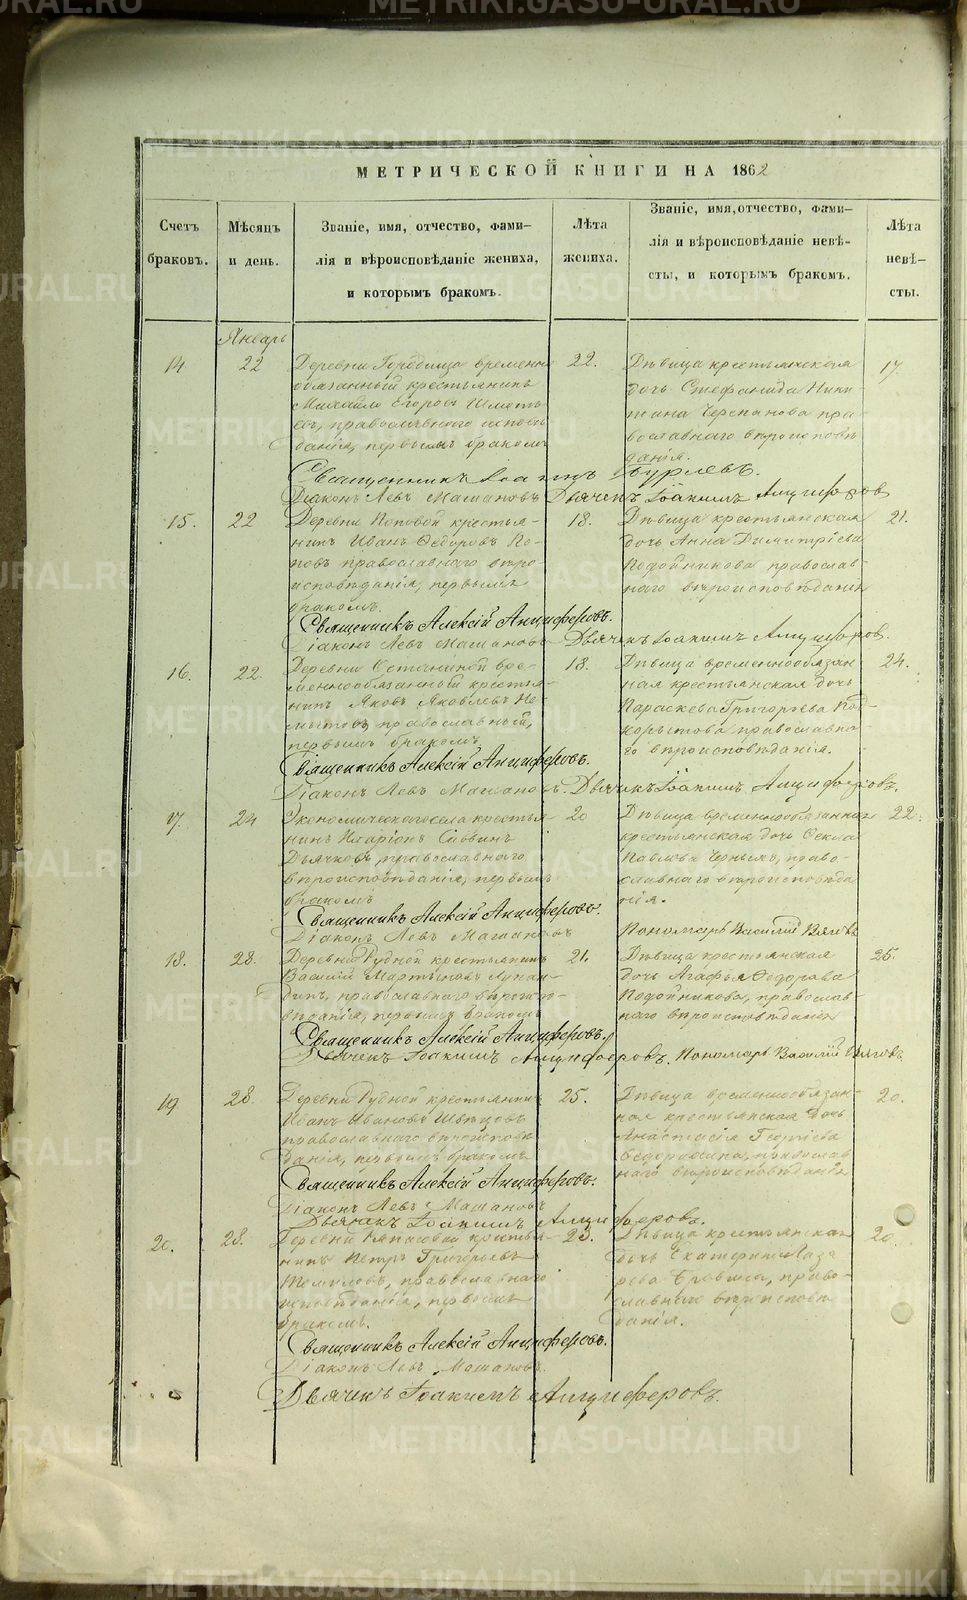 METRIKI.GASO-URAL.RU
МЕТРИЧЕСКОЙ КНИГИ НА 1862
Счетъ браковъ.
Мѣсяцъ и день.
Званіе, имя, отчество, фами-
лія и вѣроисповѣданіе жениха,
и которымъ бракомъ.
Лѣта жениха.
Званіе, имя, отчество, фами-
лія и вѣроисповѣданіе невѣ-
сты, и которымъ бракомъ.
Лѣта невѣ-
сты.
Январь
14
22
Деревни временно
обязанный крестьянинъ
Михайло Егоровъ
евъ, православнаго исповѣ
данія, первымъ бракомъ
22.
Дѣвица крестьянская
дочь Стефанида Ники
тина Черепанова пра
вославнаго вѣроисповѣ
данія.
17
Священникъ Іоаннъ Бурлевъ.
Діаконъ Левъ Машановъ Дьячекъ Іоакимъ Анциферовъ
15.
22
Деревни Поповой крестья-
нинъ Иванъ Ѳедоровъ По-
повъ православнаго вѣро
исповѣданія, первымъ
бракомъ.
18.
Дѣвица крестьянская
дочь Анна Димитріева
Подойникова православ-
наго вѣроисповѣданія
21.
Священникъ Алексій Анциферовъ.
Діаконъ Левъ Машановъ Дьячекъ Іоакимъ Анциферовъ.
16.
22.
Деревни Останиной вре-
меннообязанный крестья-
нинъ Яковъ Яковлевъ
православный,
первымъ бракомъ
18.
Дѣвица временнообязан
ная крестьянская дочь
Параскева Григорьева Под-
корытова православна
го вѣроисповѣданія.
24.
Священникъ Алексій Анциферовъ.
Діаконъ Левъ Машановъ. Дьячекъ Іоакимъ Анциферовъ.
17.
24
Экономическаго села крестья-
нинъ Иларіонъ Саввинъ
Дьячковъ, православнаго
вѣроисповѣданія, первымъ
бракомъ
20
Дѣвица временнообязанная
крестьянская дочь Ѳекла
Павлова Черныхъ, право-
славнаго вѣроисповѣда
нія.
22.
Священникъ Алексій Анциферовъ.
Діаконъ Левъ Машановъ
Пономарь Василій
18.
28.
Деревни Рудной крестьянинъ
Василій Мартыновъ
православнаго вѣроиспо-
вѣданія, первымъ бракомъ
21.
Дѣвица крестьянская
дочь Агафья Ѳедорова
Подойникова, православ-
наго вѣроисповѣданія
25.
Священникъ Алексій Анциферовъ.
Дьячекъ Іоакимъ Анциферовъ. Пономарь Василій
19
28.
Деревни Рудной крестьянинъ
Иванъ Ивановъ Швецовъ
православнаго вѣроисповѣ
данія, первымъ бракомъ
25.
Дѣвица временнообязан-
ная крестьянская дочь
Анастасія Георгіева
православ
наго вѣроисповѣданія
20.
Священникъ Алексій Анциферовъ.
Діаконъ Левъ Машановъ
Дьячекъ Іоакимъ Анциферовъ.
20.
28.
Деревни крестья-
нинъ Петръ Григорьевъ
православнаго
исповѣданія, первымъ
бракомъ.
Дѣвица крестьянская
дочь Екатерина Лаза
рева право-
славнаго вѣроисповѣ
данія.
20.
Священникъ Алексій Анциферовъ.
Діаконъ Левъ Машановъ.
Дьячекъ Іоакимъ Анциферовъ.